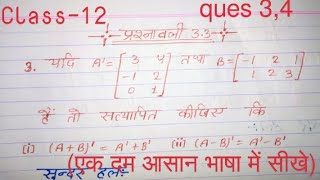 Class-12 ques 3,4
प्रश्नावली 3.3
3. यदि A' = [3 4
-1 2
0 1] तथा B = [-1 2 1
1 2 3]
है तो सत्यापित कीजिए कि
(i) (A+B)' = A'+B' (ii) (A-B)' = A'-B'
(एक दम आसान भाषा में सीखे)
हल:-